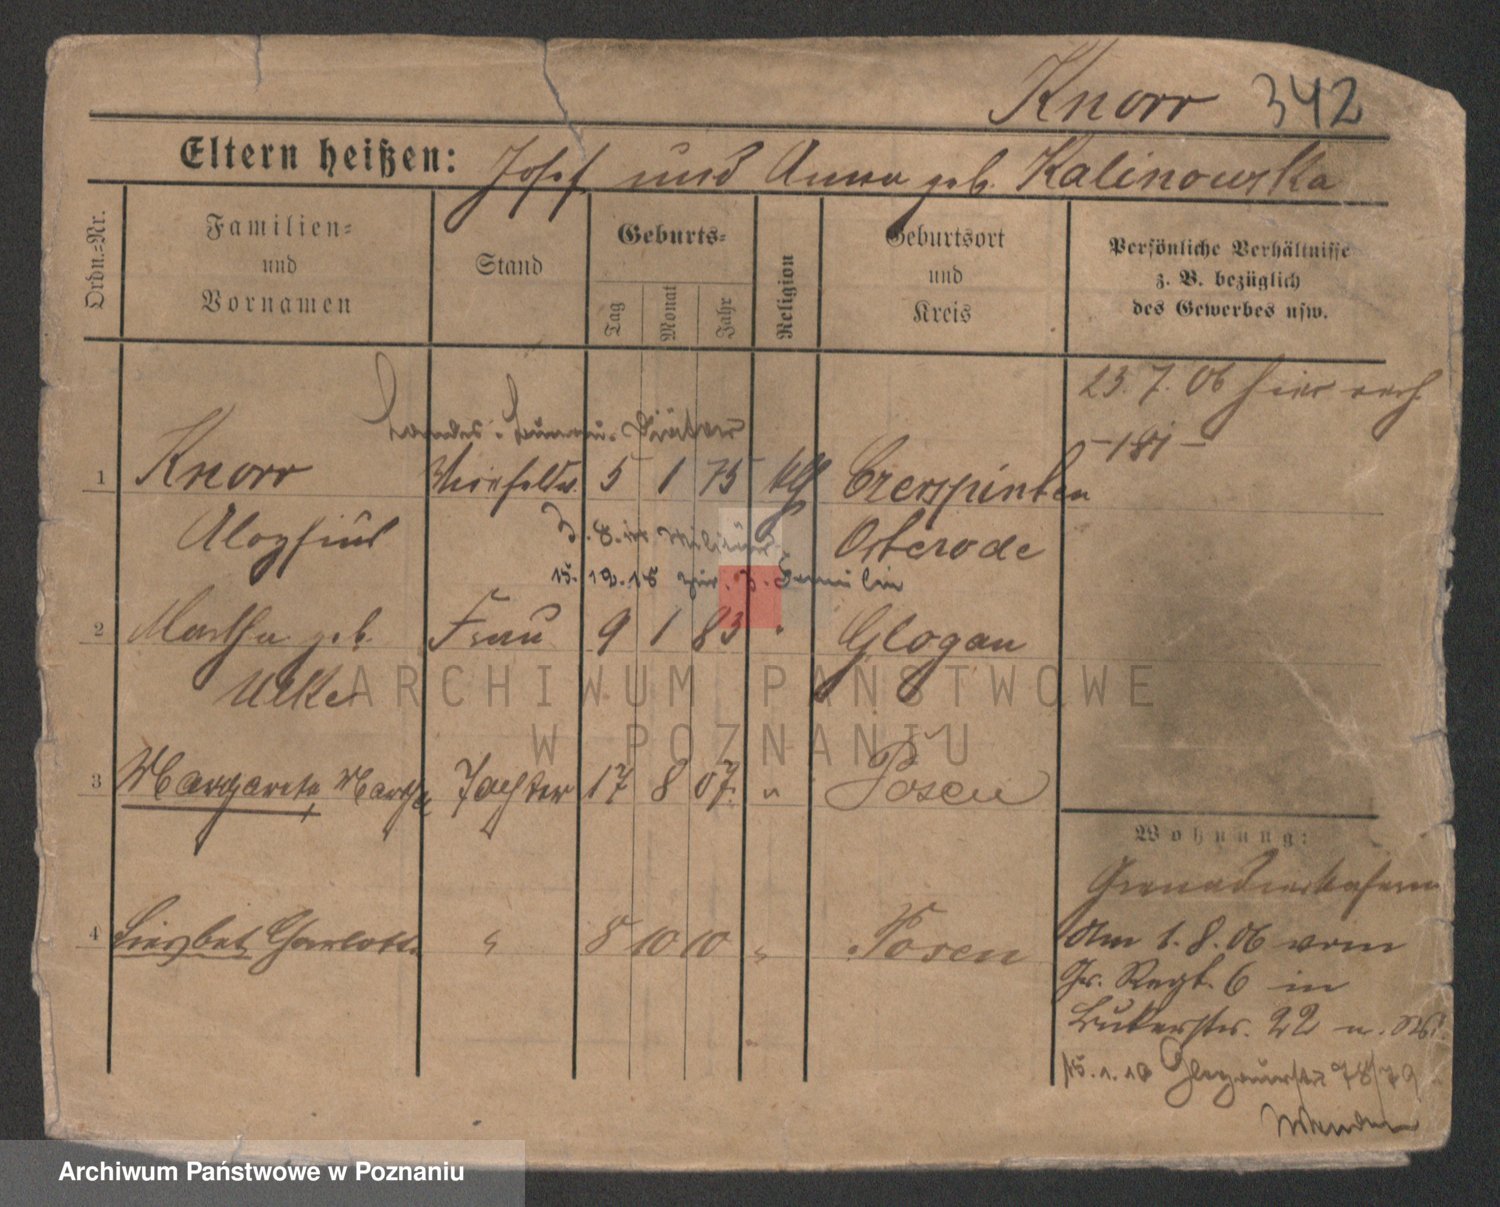 Knorr 342
Eltern heißen: Josef und Anna geb. Kalinowska
Ordn.=Nr.
Familien=
und
Vornamen
Stand
Geburts=
Tag
Monat
Jahr
Religion
Geburtsort
und
Kreis
Persönliche Verhältnisse
z. B. bezüglich
des Gewerbes usw.
23. 7. 06 hier
– 181 –
Landes-Diätar
1 Knorr 5 1 75 Czerspienten
Aloysius Osterode
3. 8. in Militär
15. 12. 18 zur Familie
2 Martha geb. Frau 9 1 83 " Glogau
Uelke
3 Margarete Martha Tochter 17 8 07 " Posen
4 Liesbet Charlotte " 8 10 10 " Posen
Wohnung:
Grenadierkasern
Am 1. 8. 06 vom
Gr. Regt. 6 in
Bukerstr. 22
15. 1. 10 Glogauerstr 78/79
Wenden
ARCHIWUM PAŃSTWOWE
W POZNANIU
Archiwum Państwowe w Poznaniu